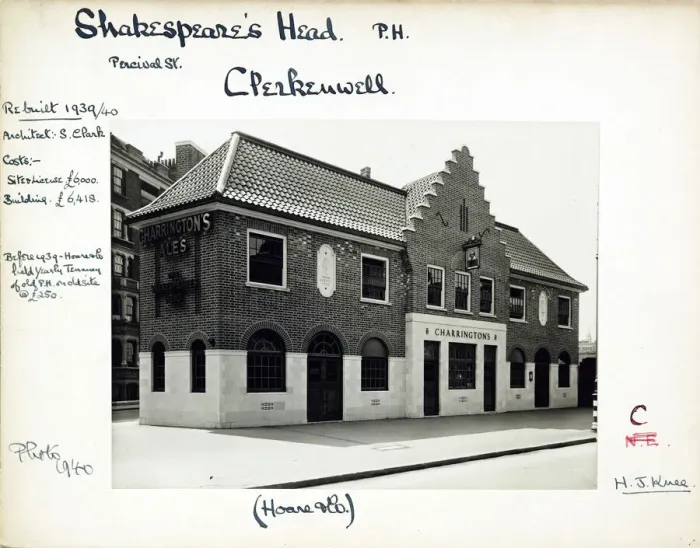 Shakespeare's Head. P.H.
Percival St.
Clerkenwell.
Rebuilt 1939/40
Architect:- S. Clark
Costs:-
Site & License £6,000.
Building. £6,418.
Before 1939 - Hoare & Co
held Yearly Tenancy
of old P.H. on old site
@ £250.
CHARRINGTON'S
ALES
CHARRINGTON'S
Photo
1940
C
N.F.E.
H. J. Knee.
(Hoare & Co.)